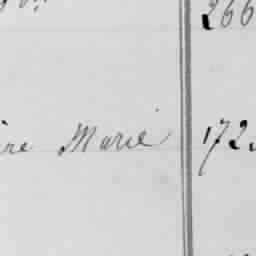 266
ire Marie 172